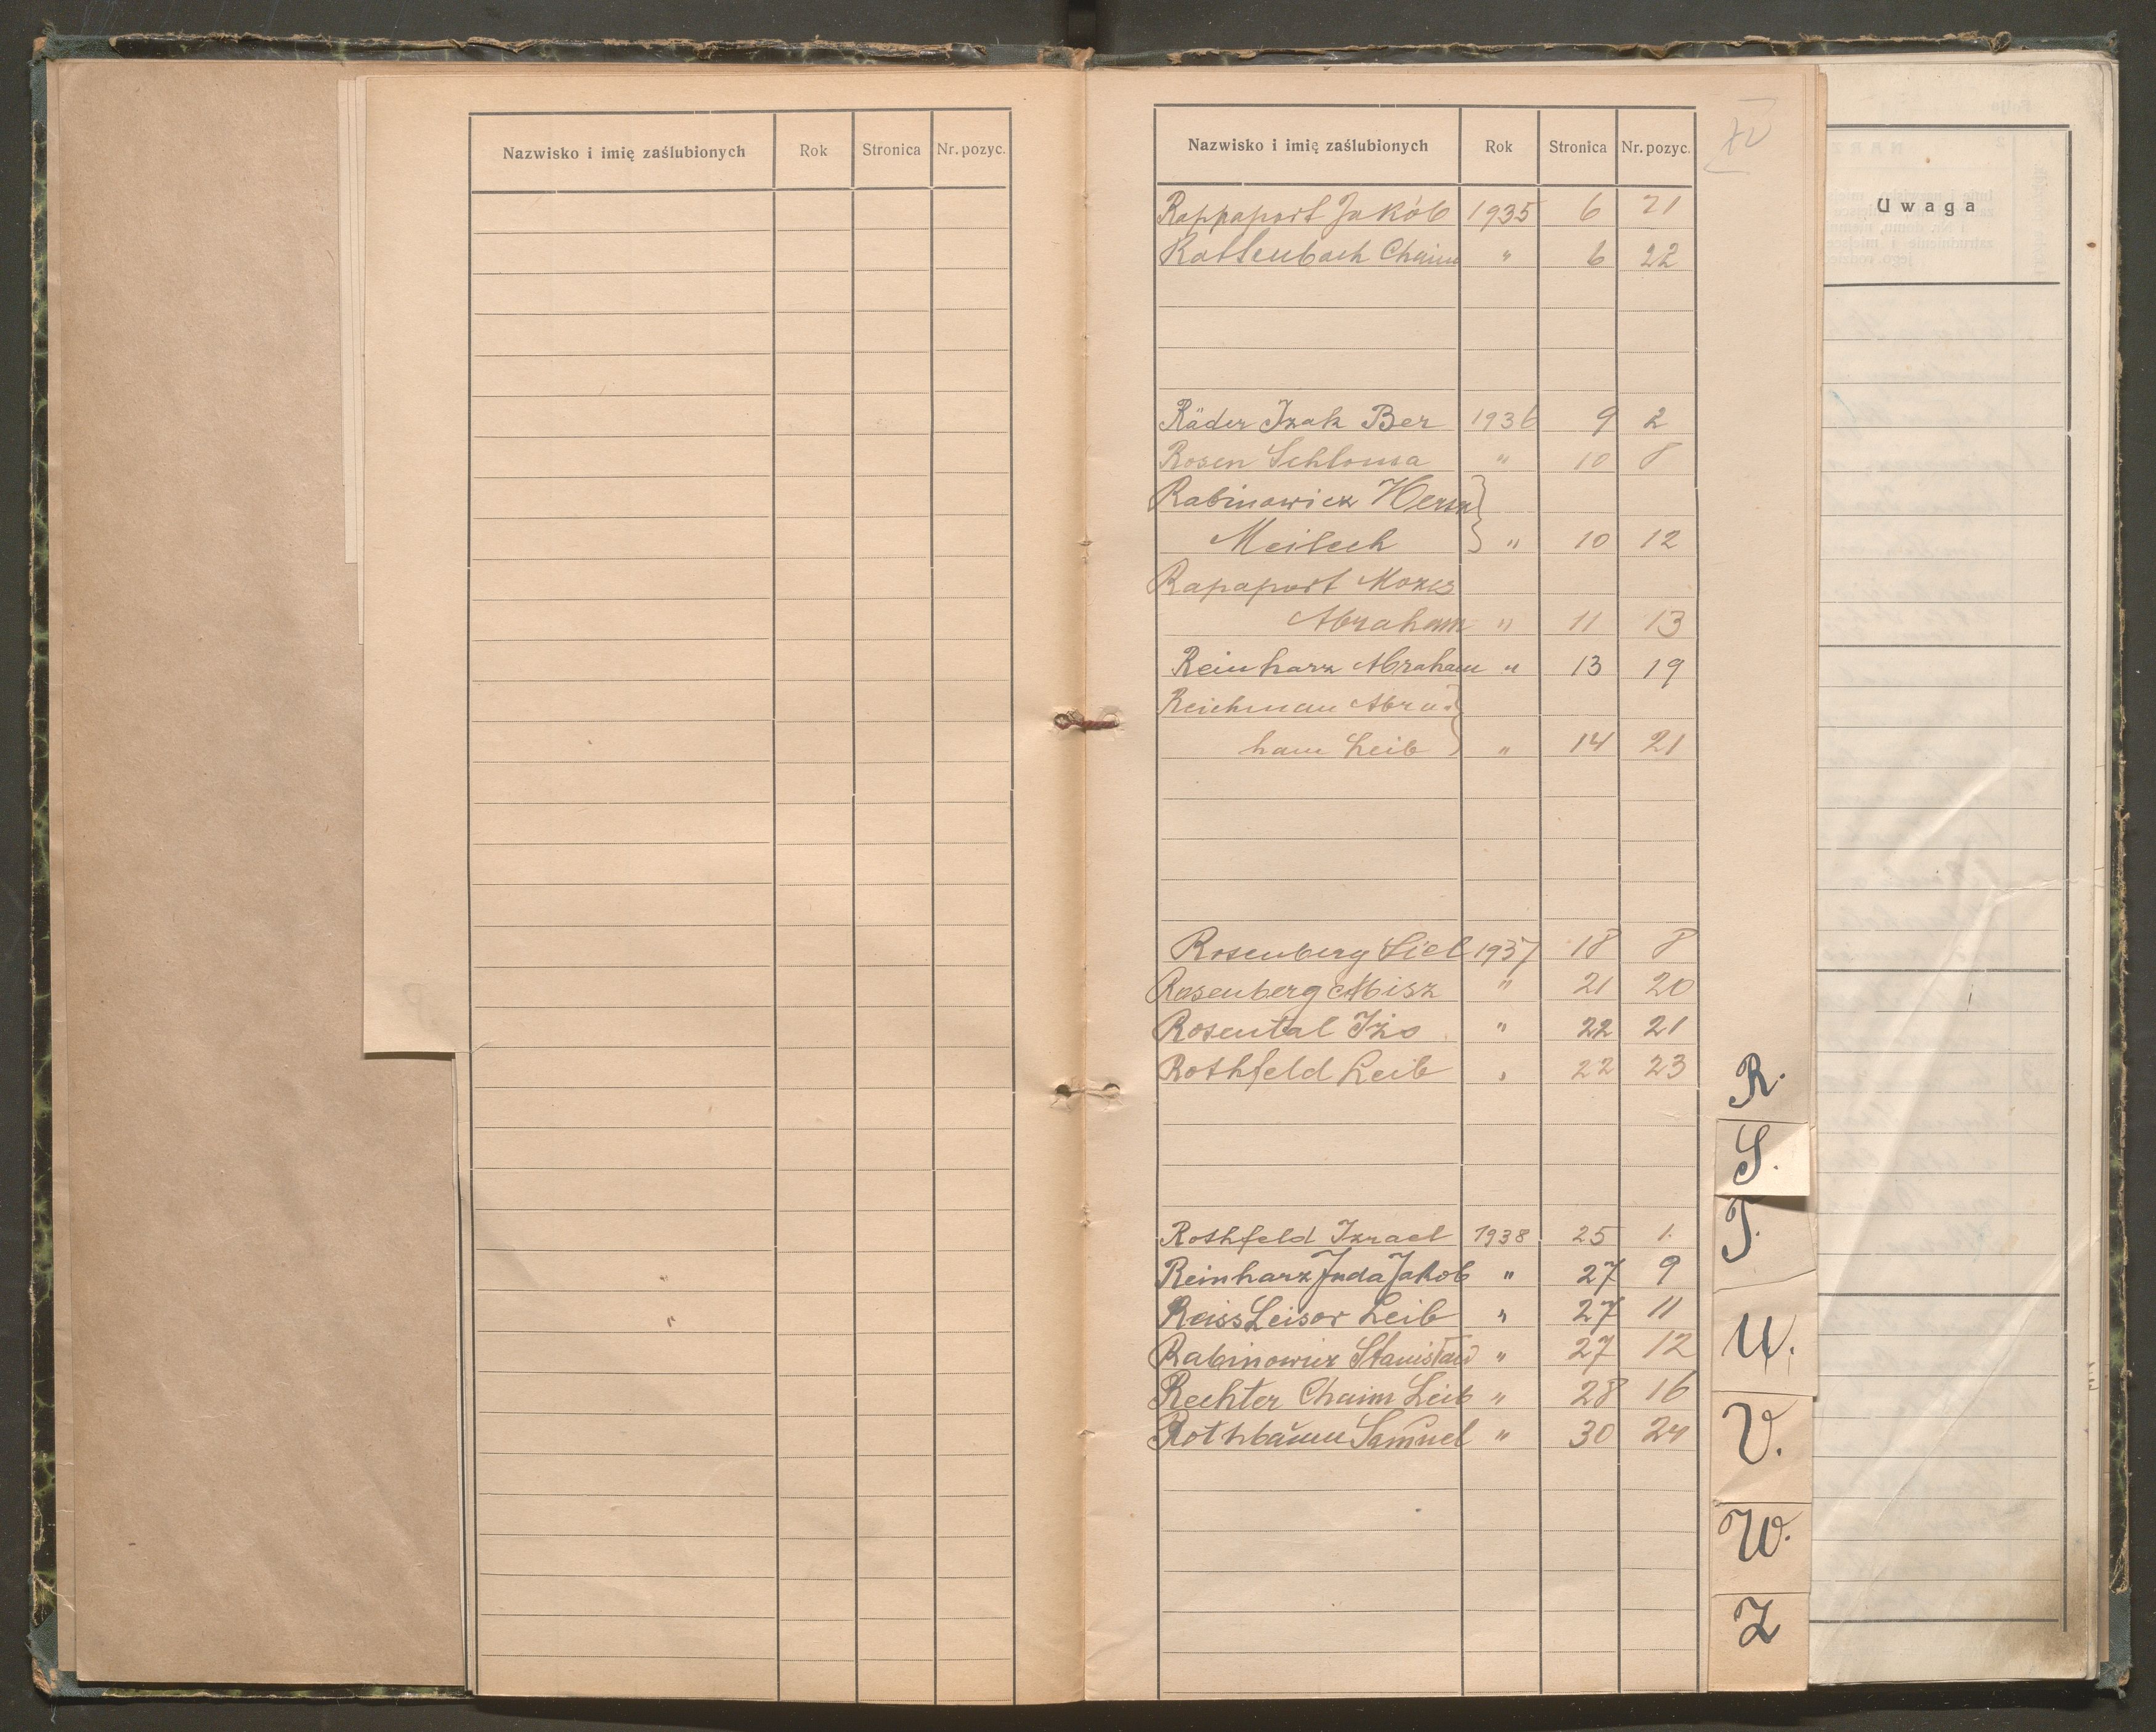 Nazwisko i imię zaślubionych Rok Stronica Nr. pozyc.
"
"
Nazwisko i imię zaślubionych Rok Stronica Nr. pozyc.
Rappaport Jakób 1935 6 21
Rottenbach Chaim " 6 22
Räder Izak Ber 1936 9 2
Rosen Schloma " 10 8
Rabinowicz Hersz
Meilech " 10 12
Rapaport Mozes
Abraham " 11 13
Reinharz Abraham " 13 19
Reichman Abra=
ham Leib " 14 21
Rosenberg Siel 1937 18 8
Rosenberg Abisz " 21 20
Rosental Izo " 22 21
Rothfeld Leib " 22 23
Rothfeld Izrael 1938 25 1.
Reinharz Juda Jakob " 27 9
Reiss Leisor Leib " 27 11
Rabinowicz Stanisław " 27 12
Rechter Chaim Leib " 28 16
Rothbaum Samuel " 30 24
R.
S.
T.
U.
V.
W.
Z
Uwaga